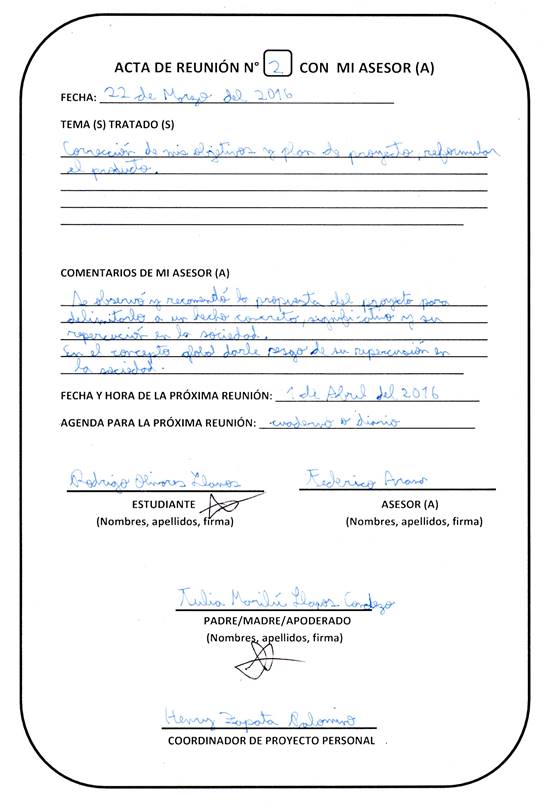 ACTA DE REUNIÓN N° 2 CON MI ASESOR (A)
FECHA: 22 de Marzo del 2016
TEMA (S) TRATADO (S)
Corrección de mis objetivos y plan de proyecto, reformular
el producto.
COMENTARIOS DE MI ASESOR (A)
Se observó y recomendó la propuesta del proyecto para
delimitarlo a un hecho concreto, significativo y su
repercusión en la sociedad.
En el concepto global darle sesgo de su repercusión en
la sociedad.
FECHA Y HORA DE LA PRÓXIMA REUNIÓN: 1 de Abril del 2016
AGENDA PARA LA PRÓXIMA REUNIÓN: cuaderno o diario
Rodrigo Olivares Llanos
Federico
ESTUDIANTE
ASESOR (A)
(Nombres, apellidos, firma)
(Nombres, apellidos, firma)
Julia Marilú Llanos
PADRE/MADRE/APODERADO
(Nombres, apellidos, firma)
Henry Zapata Palomino
COORDINADOR DE PROYECTO PERSONAL